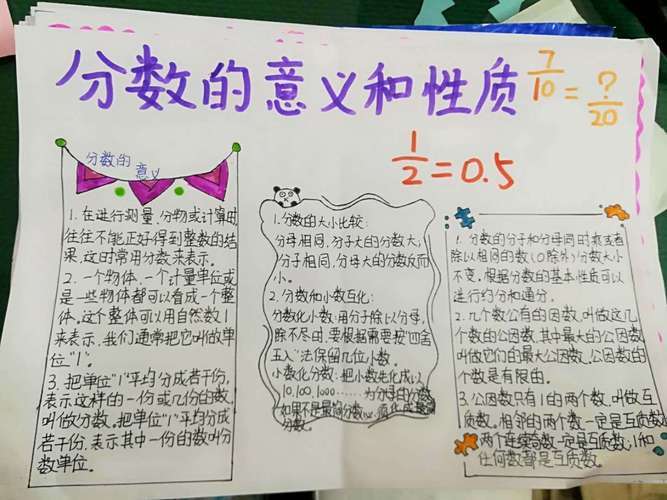 分数的意义和性质
7/10=?/20
1/2=0.5
分数的
意义
1.在进行测量,分物或计算时
往往不能正好得到整数的结
果,这时常用分数来表示。
2.一个物体,一个计量单位或
是一些物体都可以看成一个整
体,这个整体可以用自然数1
来表示,我们通常把它叫做单
位"1"。
3.把单位"1"平均分成若干份,
表示这样的一份或几份的数
叫做分数。把单位"1"平均分成
若干份,表示其中一份的数叫分
数单位。
1.分数的大小比较:
分母相同,分子大的分数大;
分子相同,分母大的分数反而
小。
2.分数和小数互化:
分数化小数:用分子除以分母,
除不尽时,要根据需要按"四舍
五入"法保留几位小数。
小数化分数:把小数先化成以
10,100,1000……为分母的分数,
如果不是最简分数,
分数。
1.分数的分子和分母同时乘或者
除以相同的数(0除外)分数大小
不变。根据分数的基本性质可以
进行约分和通分。
2.几个数公有的因数,叫做这几
个数的公因数,其中最大的公因数
叫做它们的最大公因数。公因数的
个数是有限的。
3.公因数只有1的两个数,叫做互
质数。相邻的两个数一定是互质数
两个连续奇数一定是互质数;1和
任何数都是互质数。